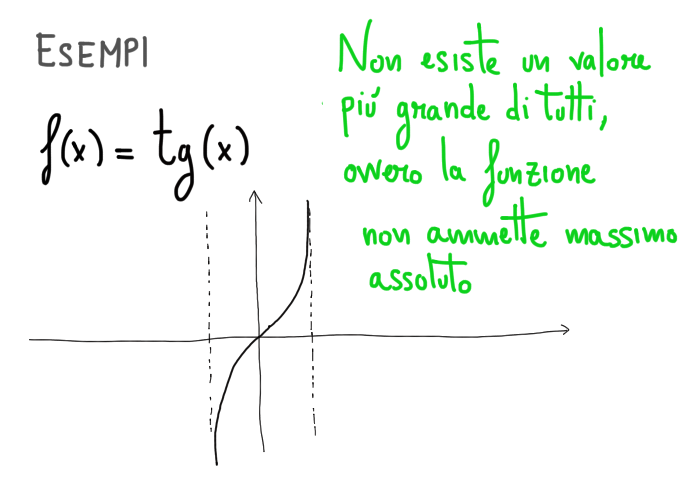 ESEMPI
f(x) = tg(x)
Non esiste un valore
più grande di tutti,
ovvero la funzione
non ammette massimo
assoluto